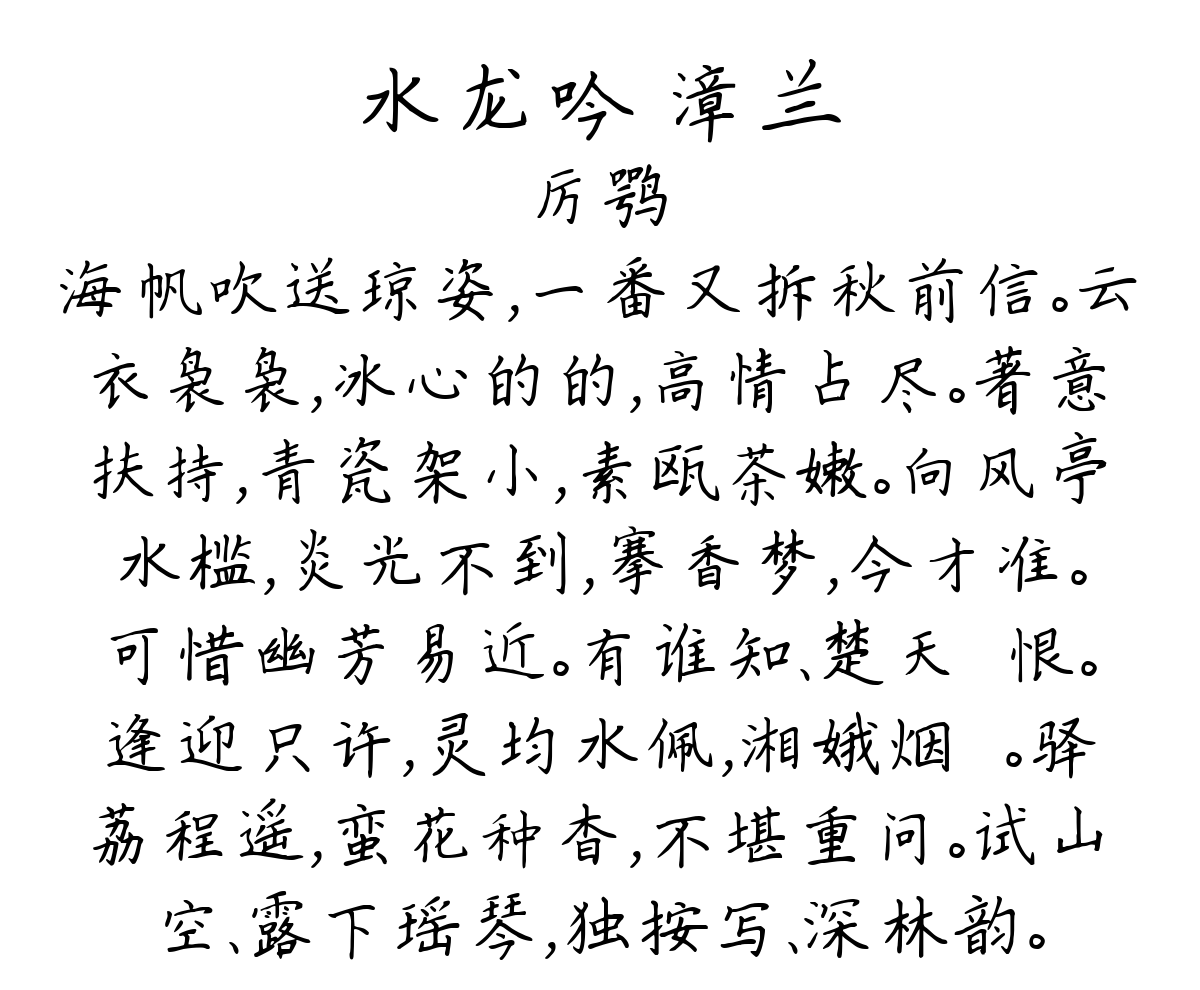 水龙吟 漳兰
厉鹗
海帆吹送琼姿,一番又拆秋前信。云
衣袅袅,冰心的的,高情占尽。著意
扶持,青瓷架小,素瓯茶嫩。向风亭
水槛,炎光不到,搴香梦,今才准。
可惜幽芳易近。有谁知、楚天 恨。
逢迎只许,灵均水佩,湘娥烟 。驿
荔程遥,蛮花种杳,不堪重问。试山
空、露下瑶琴,独按写、深林韵。